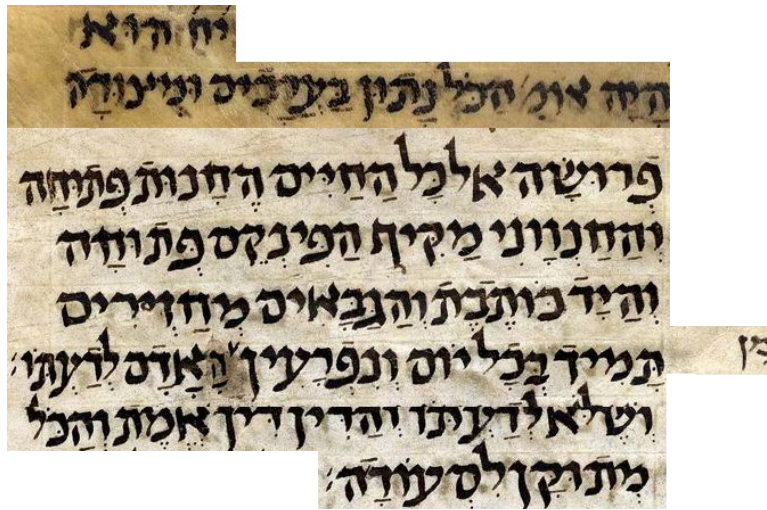 יח הוא
היה אומ' הכל נתון בערבים ומצודה
פרושה אל כל החיים החנות פתוחה
והחנווני מקיף הפינקס פתוחה
והיד כותבת והגבאים מחזירים
תמיד בכל יום ונפרעין האדם לדעתו
ושלא לדעתו והדין דין אמת והכל
מתוקן לסעודה: